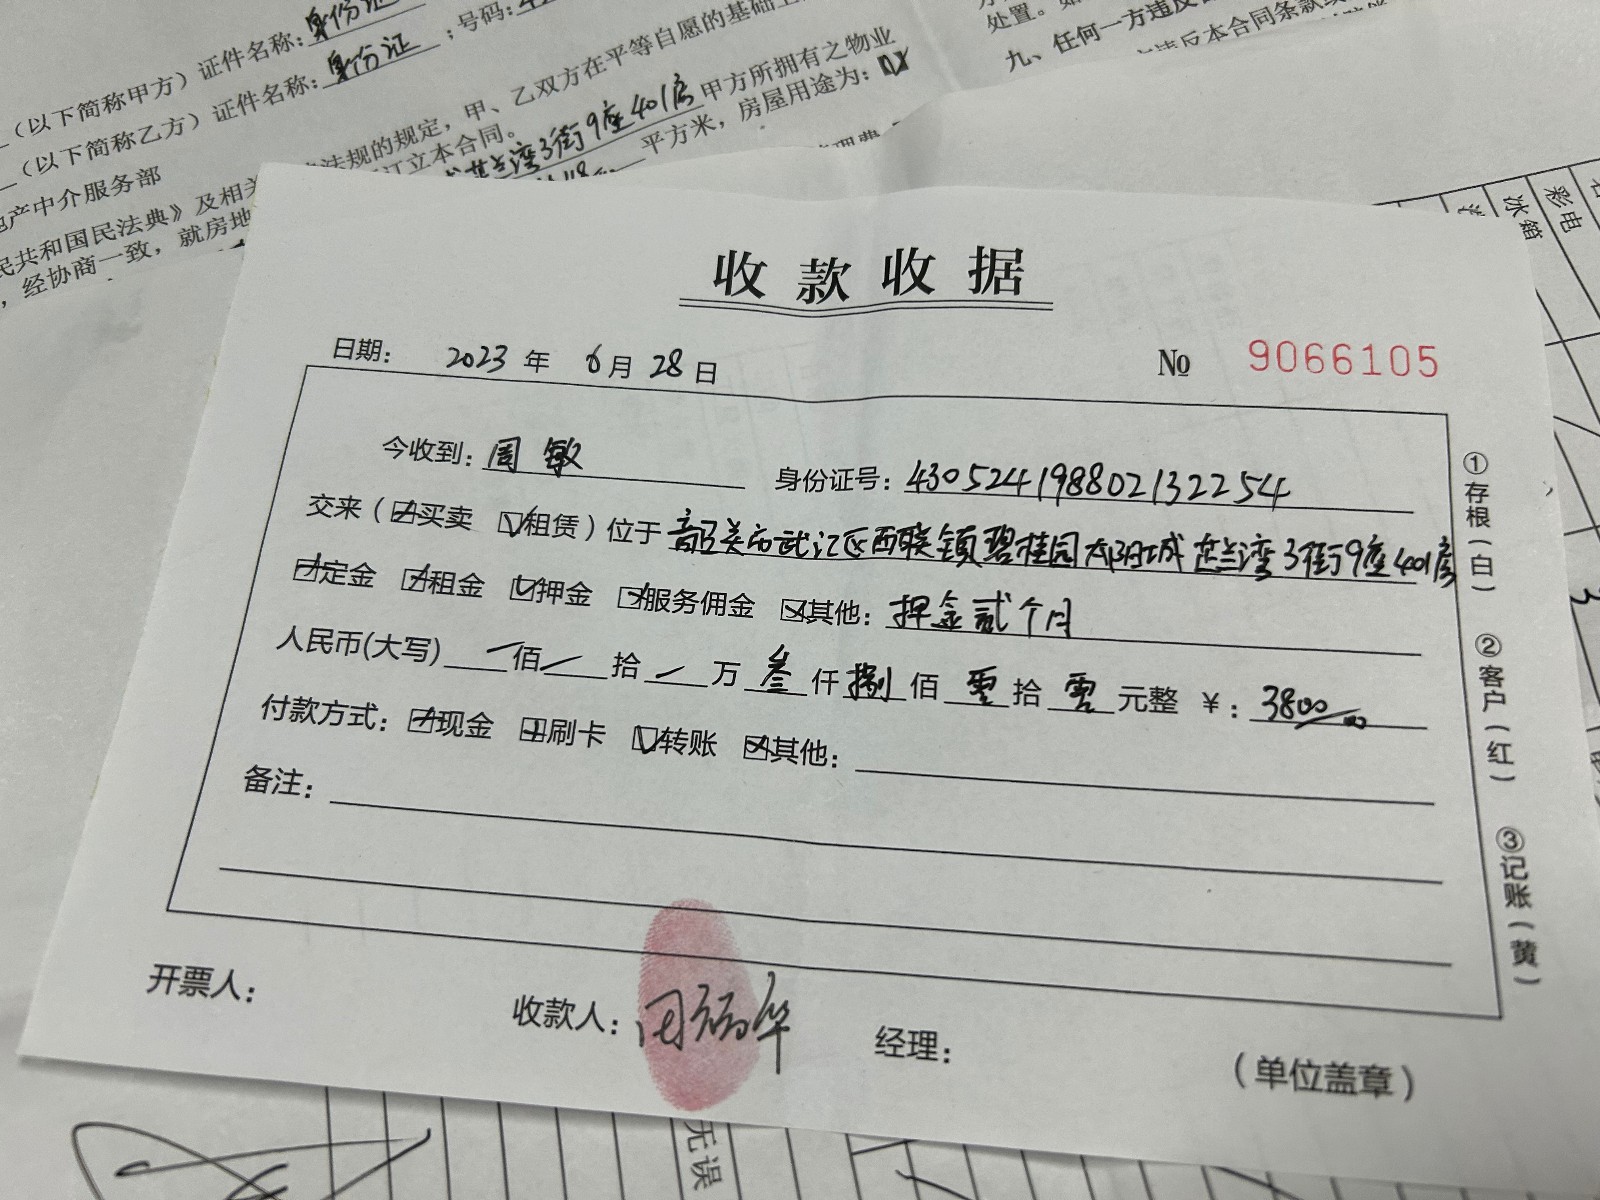 （以下简称甲方）证件名称：身份证
（以下简称乙方）证件名称：身份证；号码：
地产中介服务部
民共和国民法典》及相关法规的规定，甲、乙双方在平等自愿的基础上
，经协商一致，就房地
订立本合同。
芷兰湾3街9座401房甲方所拥有之物业
平方米，房屋用途为：
处置。如
九、任何一方违反
违反本合同条款
彩电
冰箱
收款收据
日期： 2023 年 6 月 28 日
№ 9066105
今收到：周敏 身份证号：430524198802132254
交来（☒买卖 ☑租赁）位于韶关市武江区西联镇碧桂园太阳城芷兰湾3街9座401房
☒定金 ☒租金 ☑押金 ☒服务佣金 ☒其他：押金贰个月
人民币(大写) 佰 拾 万叁仟捌佰零拾零元整 ￥：3800.00
付款方式：☒现金 ☒刷卡 ☑转账 ☒其他：
备注：
①存根(白) ②客户(红) ③记账(黄)
开票人： 收款人： 经理： （单位盖章）
无误